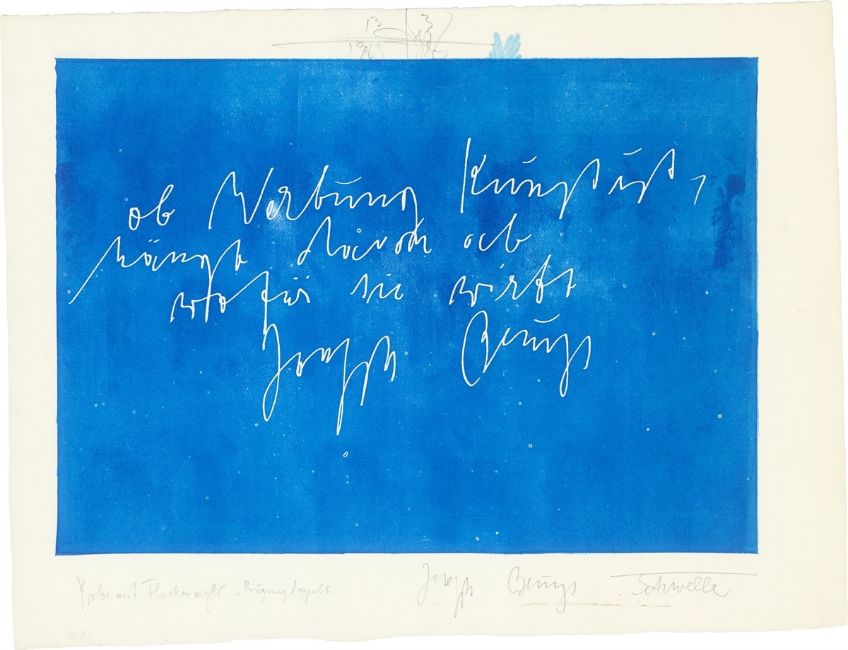 ob Werbung Kunst ist,
hängt davon ab
wofür sie wirbt
Joseph Beuys
Probe mit Flecken rechts - Prägung doppelt
Joseph Beuys Schwelle